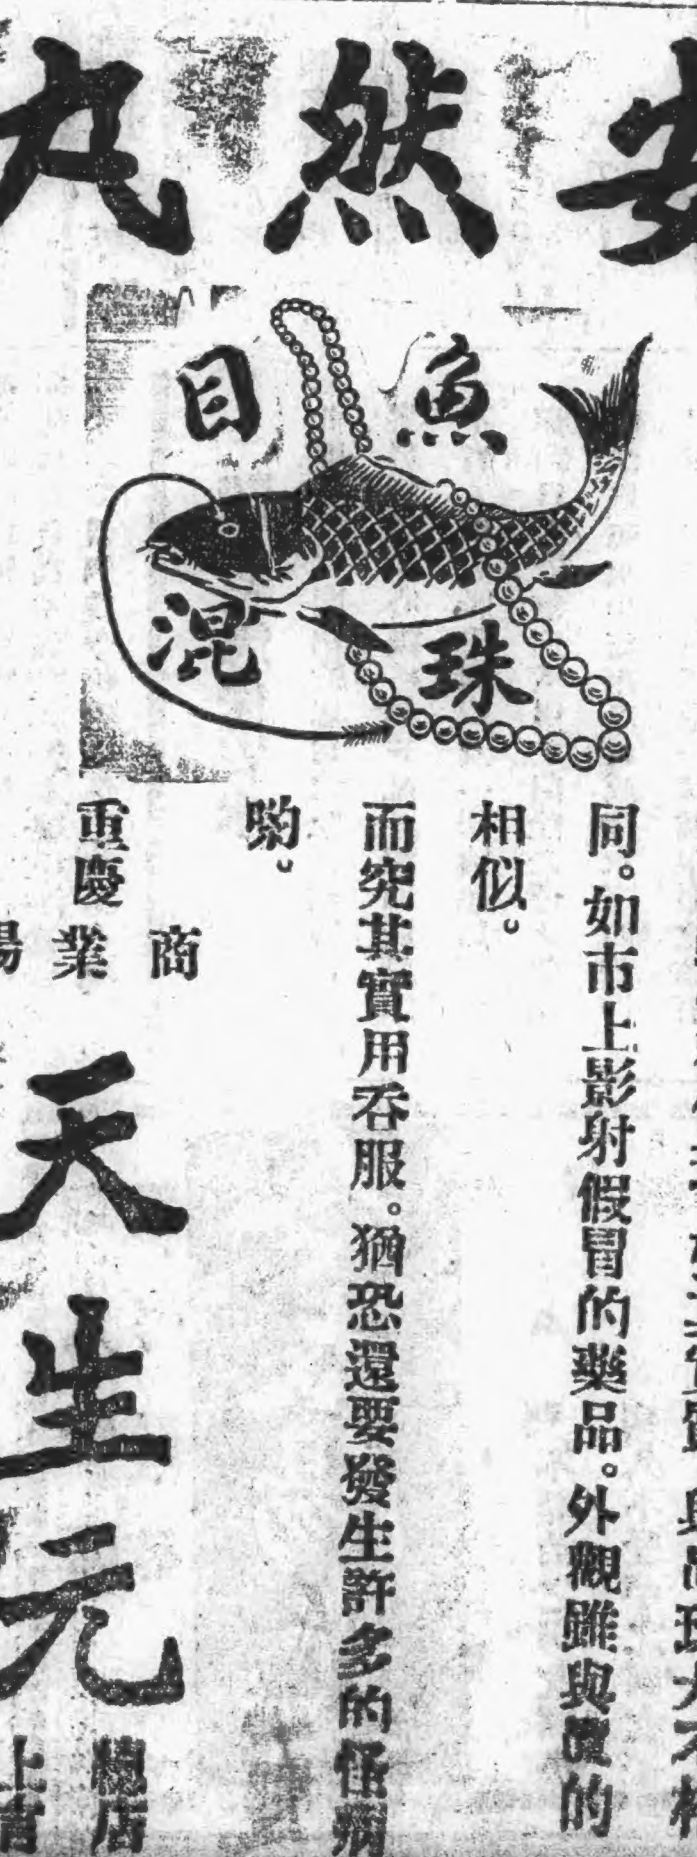 安然丸
魚目
混珠
同。如市上影射假冒的藥品。外觀雖與真的
相似。
而究其實用吞服。猶恐還要發生許多的怪病
喲。
重慶
商業場
天生元
總店